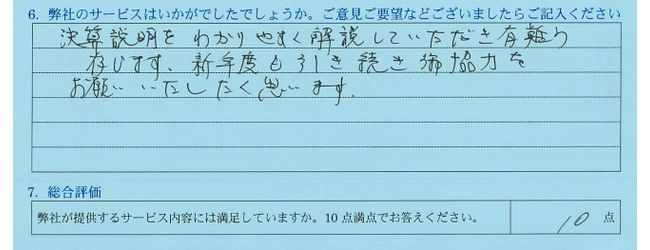 6. 弊社のサービスはいかがでしたでしょうか。ご意見ご要望などございましたらご記入ください
決算説明を わかりやすく解説していただき有難う
存じます、新年度も引き続き御協力を
お願いいたしたく思います。
7. 総合評価
弊社が提供するサービス内容には満足していますか。10点満点でお答えください。 10 点